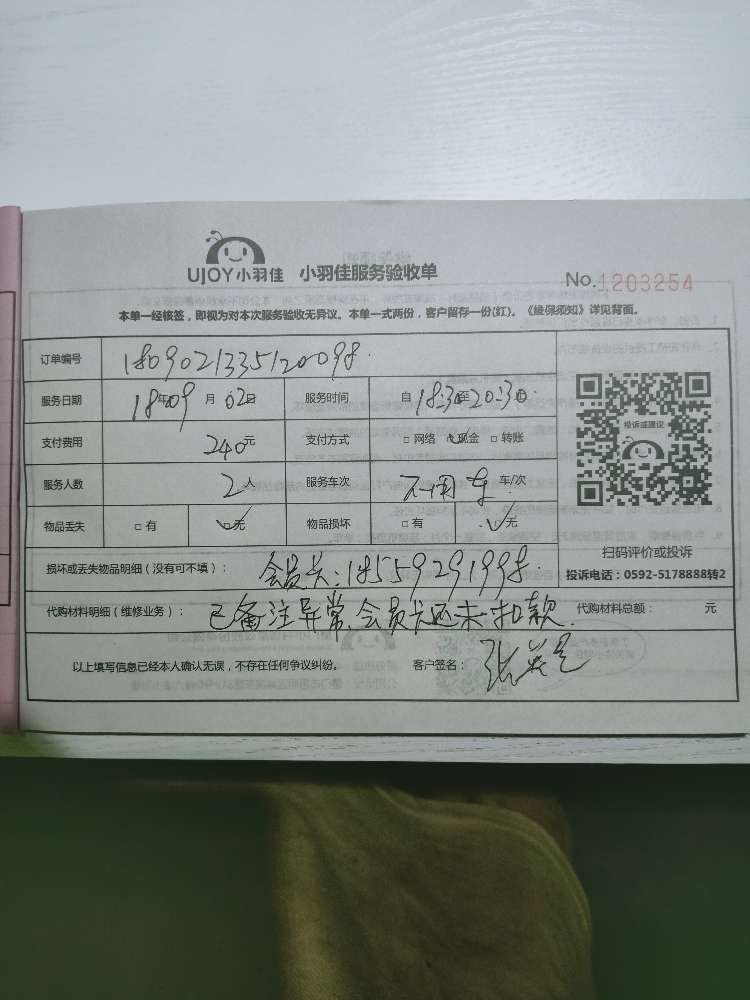 UJOY小羽佳 小羽佳服务验收单 No.1203254
本单一经核签，即视为对本次服务验收无异议。本单一式两份，客户留存一份(红)。《维保须知》详见背面。
订单编号 1809021335120098.
服务日期 18年09月02日 服务时间 自18:30至20:30止
支付费用 240元 支付方式 □网络 ☑现金 □转账
投诉或建议
服务人数 2人 服务车次 不用车 车/次
物品丢失 □有 ☑无 物品损坏 □有 ☑无
扫码评价或投诉
损坏或丢失物品明细（没有可不填）： 会员卡:18559291998.
投诉电话：0592-5178888转2
代购材料明细（维修业务）： 已备注异常,会员卡还未扣款. 代购材料总额： 元
以上填写信息已经本人确认无误，不存在任何争议纠纷。 客户签名：